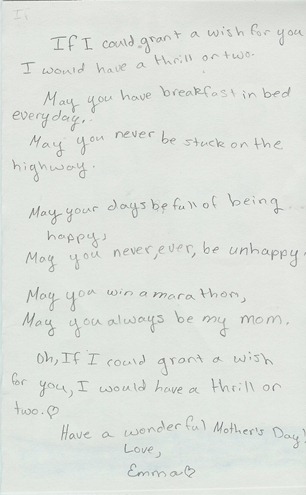 If I could grant a wish for you
I would have a thrill or two.
May you have breakfast in bed
everyday,.
May you never be stuck on the
highway.
May your days be full of being
happy,
May you never, ever, be unhappy.
May you win a marathon,
May you always be my mom.
Oh, If I could grant a wish
for you, I would have a thrill or
two.♡
Have a wonderful Mother's Day!
Love,
Emma♡